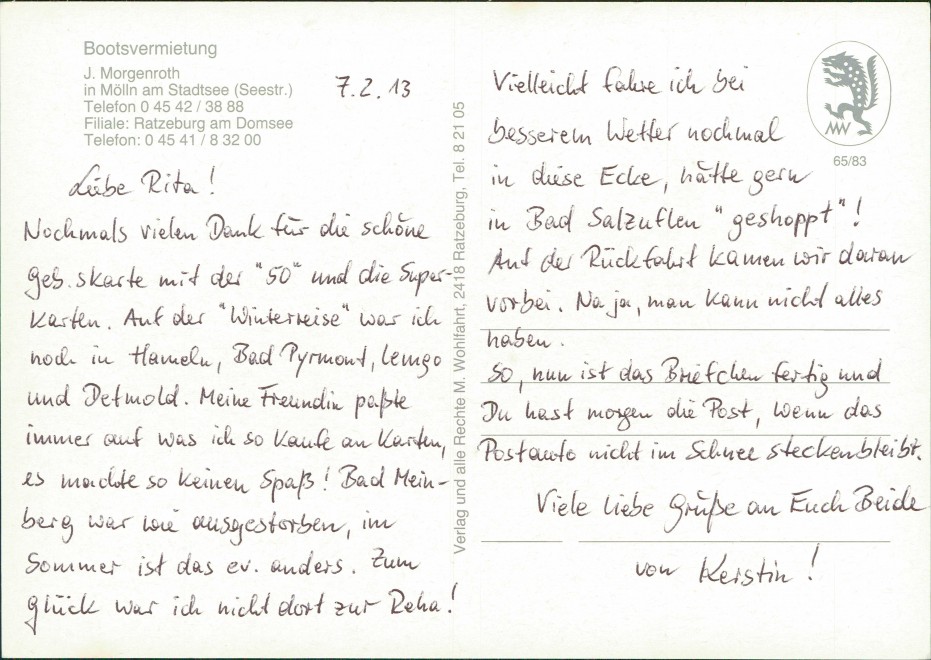 Bootsvermietung
J. Morgenroth
in Mölln am Stadtsee (Seestr.)
Telefon 0 45 42 / 38 88
Filiale: Ratzeburg am Domsee
Telefon: 0 45 41 / 8 32 00
7.2.13
Liebe Rita!
Nochmals vielen Dank für die schöne
geb.skarte mit der "50" und die Super-
karten. Auf der "Winterreise" war ich
noch in Hameln, Bad Pyrmont, Lemgo
und Detmold. Meine Freundin paßte
immer auf was ich so kaufe an Karten,
es machte so keinen Spaß! Bad Mein-
berg war wie ausgestorben, im
Sommer ist das ev. anders. Zum
Glück war ich nicht dort zur Reha!
Verlag und alle Rechte M. Wohlfahrt, 2418 Ratzeburg, Tel. 8 21 05
65/83
Vielleicht fahre ich bei
besserem Wetter nochmal
in diese Ecke, hätte gern
in Bad Salzuflen "geshoppt"!
Auf der Rückfahrt kamen wir daran
vorbei. Na ja, man kann nicht alles
haben.
So, nun ist das Briefchen fertig und
Du hast morgen die Post, wenn das
Postauto nicht im Schnee steckenbleibt.
Viele liebe Grüße an Euch Beide
von Kerstin!